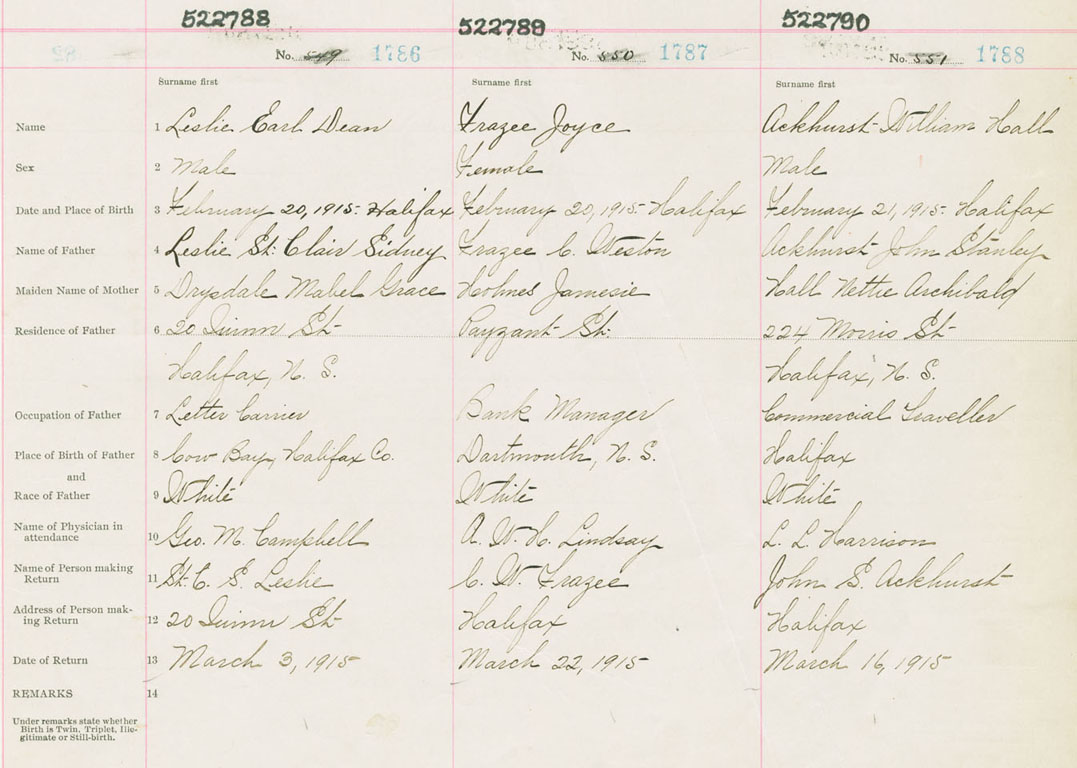 522788 522789 522790
No. 549 1786 No. 550 1787 No. 551 1788
Surname first Surname first Surname first
Name 1 Leslie Earl Dean Frazee Joyce Ackhurst William Hall
Sex 2 Male Female Male
Date and Place of Birth 3 February 20, 1915. Halifax February 20, 1915 Halifax February 21, 1915. Halifax
Name of Father 4 Leslie St. Clair Sidney Frazee C. Weston Ackhurst John Stanley
Maiden Name of Mother 5 Drysdale Mabel Grace Holmes Jamesie Hall Nettie Archibald
Residence of Father 6 20 St Payzant St. 224 Morris St
Halifax, N. S. Halifax, N. S.
Occupation of Father 7 Letter Carrier Bank Manager Commercial Traveller
Place of Birth of Father 8 Cow Bay, Halifax Co. Dartmouth, N. S. Halifax
and
Race of Father 9 White White White
Name of Physician in
attendance 10 Geo. M. Campbell A. W. H. Lindsay L. L. Harrison
Name of Person making
Return 11 St. C. S. Leslie C. W. Frazee John S. Ackhurst
Address of Person mak-
ing Return 12 20 St Halifax Halifax
Date of Return 13 March 3, 1915 March 22, 1915 March 16, 1915
REMARKS 14
Under remarks state whether
Birth is Twin, Triplet, Ille-
gitimate or Still-birth.